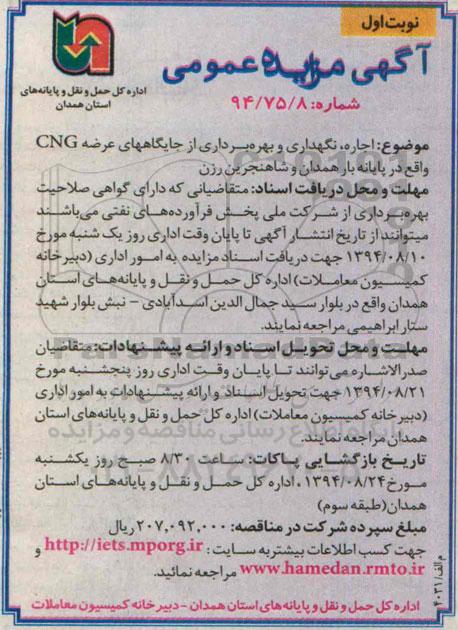 نوبت اول
آگهی مزایده عمومی
شماره: ۹۴/۷۵/۸
اداره کل حمل و نقل و پایانه‌های
استان همدان
موضوع: اجاره، نگهداری و بهره‌برداری از جایگاههای عرضه CNG
واقع در پایانه بار همدان و شاهنجرین رزن
مهلت و محل دریافت اسناد: متقاضیانی که دارای گواهی صلاحیت
بهره‌برداری از شرکت ملی پخش فرآورده‌های نفتی می‌باشند
میتوانند از تاریخ انتشار آگهی تا پایان وقت اداری روز یک شنبه مورخ
۱۳۹۴/۰۸/۱۰ جهت دریافت اسناد مزایده به امور اداری (دبیرخانه
کمیسیون معاملات) اداره کل حمل و نقل و پایانه‌های استان
همدان واقع در بلوار سید جمال الدین اسدآبادی – نبش بلوار شهید
ستار ابراهیمی مراجعه نمایند.
مهلت و محل تحویل اسناد و ارائه پیشنهادات: متقاضیان
صدرالاشاره می‌توانند تا پایان وقت اداری روز پنجشنبه مورخ
۱۳۹۴/۰۸/۲۱ جهت تحویل اسناد و ارائه پیشنهادات به امور اداری
(دبیرخانه کمیسیون معاملات) اداره کل حمل و نقل و پایانه‌های استان
همدان مراجعه نمایند.
تاریخ بازگشایی پاکات: ساعت ۸/۳۰ صبح روز یکشنبه
مورخ ۱۳۹۴/۰۸/۲۴، اداره کل حمل و نقل و پایانه‌های استان
همدان(طبقه سوم)
مبلغ سپرده شرکت در مناقصه: ۲۰۷,۰۹۲,۰۰۰ ریال
جهت کسب اطلاعات بیشتر به سایت: http://iets.mporg.ir و
www.hamedan.rmto.ir مراجعه نمائید.
م الف/۴۰۳۱
اداره کل حمل و نقل و پایانه‌های استان همدان - دبیرخانه کمیسیون معاملات